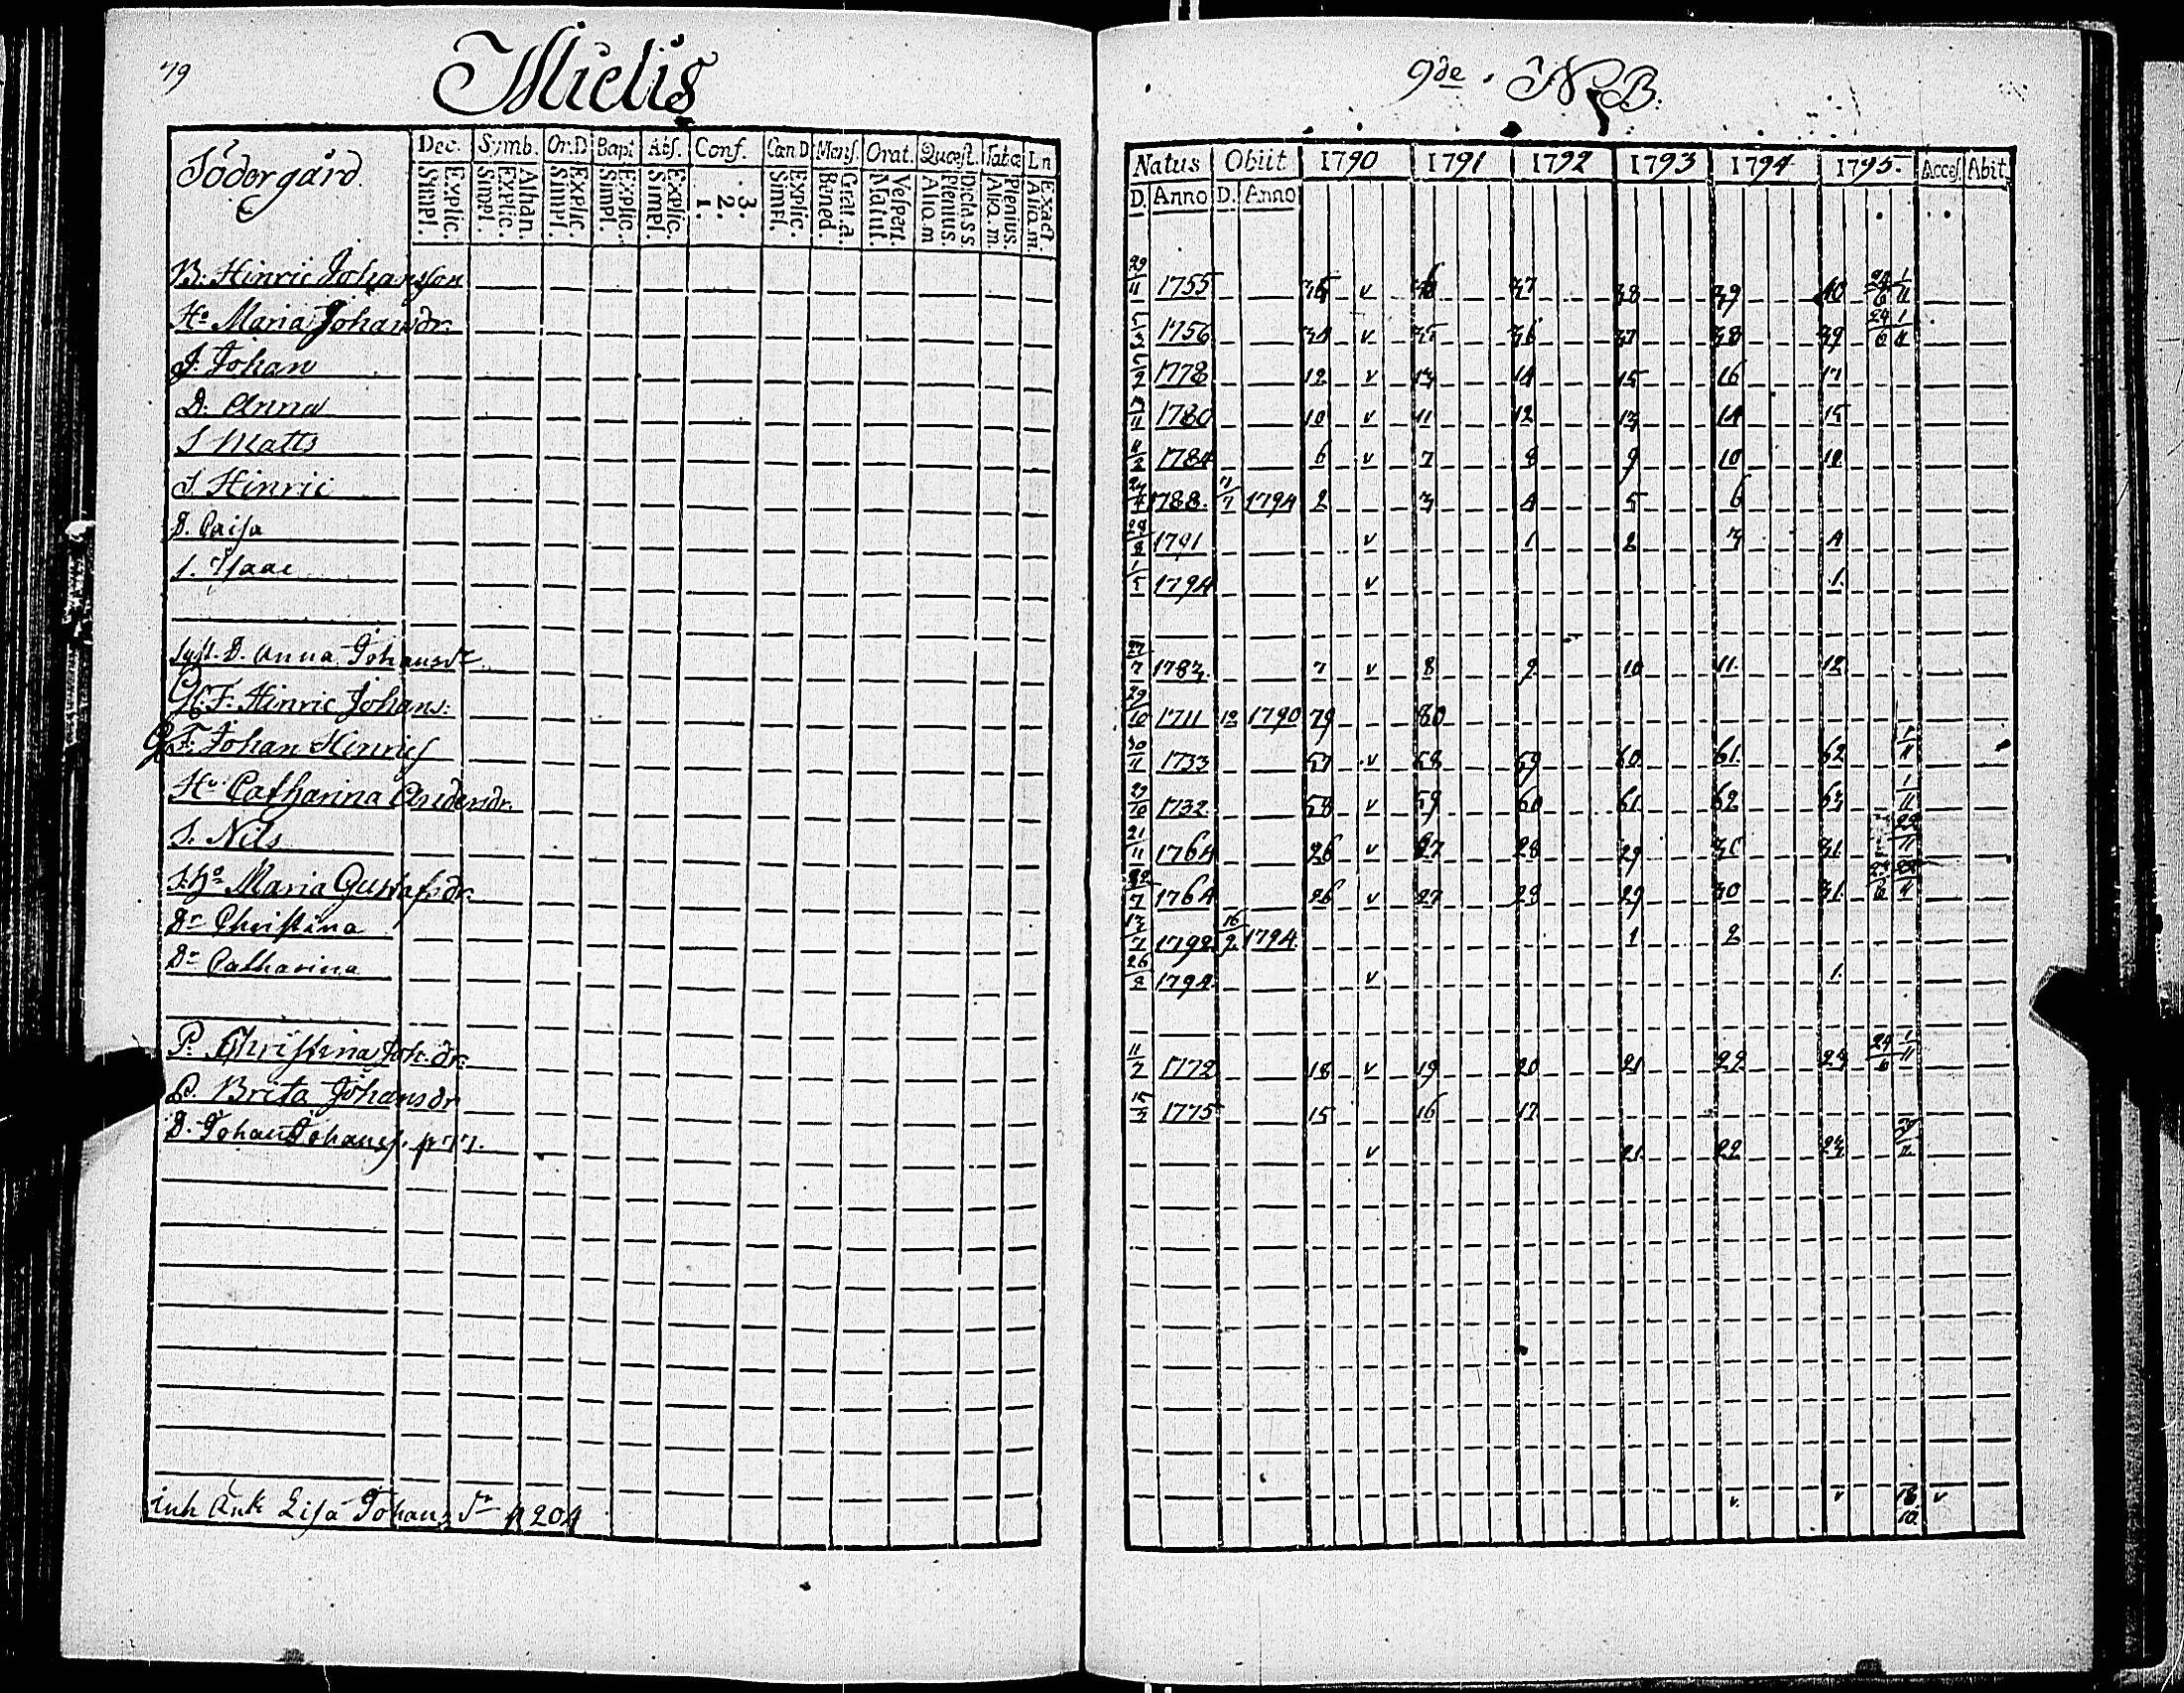 79 Mielis
9de N B.
Södergård. Dec. Symb. Or.D. Bapt Abs. Conf. Can D Mens. Orat. Quæst. Tabæ Ln
Simpl. Explic. Simpl. Explic. Athan. Simpl. Explic. Simpl. Explic. Simpl. Explic. 1. 2. 3. Simpl. Explic. Bened. Grat. a Matut. Vespert. Aliq. m Plenius. Dic. ass Aliq. m. Plenius. Aliq. m. Exact
Natus Obiit 1790 1791 1792 1793 1794 1795. Acces Abit.
D. Anno D. Anno
B. Hinric Johansson 29/11 1755 35 v 36 37 38 39 40 24/6 1/11
Ho Maria Johansdr. 1756 34 v 35 36 37 38 39 24/6 1/11
S. Johan 1778 12 v 13 14 15 16 17
D. Anna 1780 10 v 11 12 13 14 15
S Matts 1784 6 v 7 8 9 10 11
S. Hinric 1788. 1794 2 3 4 5 6
D. Caisa 1791 v 1 2 3 4
S. Isaac 1/5 1794 v 1.
syst. D. Anna Johansdr 27/7 1783. 7 v 8 9 10 11. 12
Gl. F. Hinric Johans: 29/10 1711 12 1790 79 80
G F. Johan Hinrics 30/11 1733 57 v 58 59 60 61. 62 1/11
Hu Catharina Andersdr. 29/10 1732. 58 v 59 60 61 62 63 1/11
S. Nils 21/11 1764 26 v 27 28 29 30 31
S. ho Maria Gustafsdr. 22/7 1764 26 v 27 28 29 30 31.
Dr Christina 13/7 1792 16/9 1794 1 2
Dr Catharina 26/8 1794 v 1.
P. Christina Joh. dr. 11/7 1772 18 v 19 20 21 22 23 24/6 1/11
P. Brita Johansdr 15/3 1775 15 16 17
D. Johan Johanss. v 21 22 23
inh Enk Lisa Johansdr p 204 v. v 18/10 v